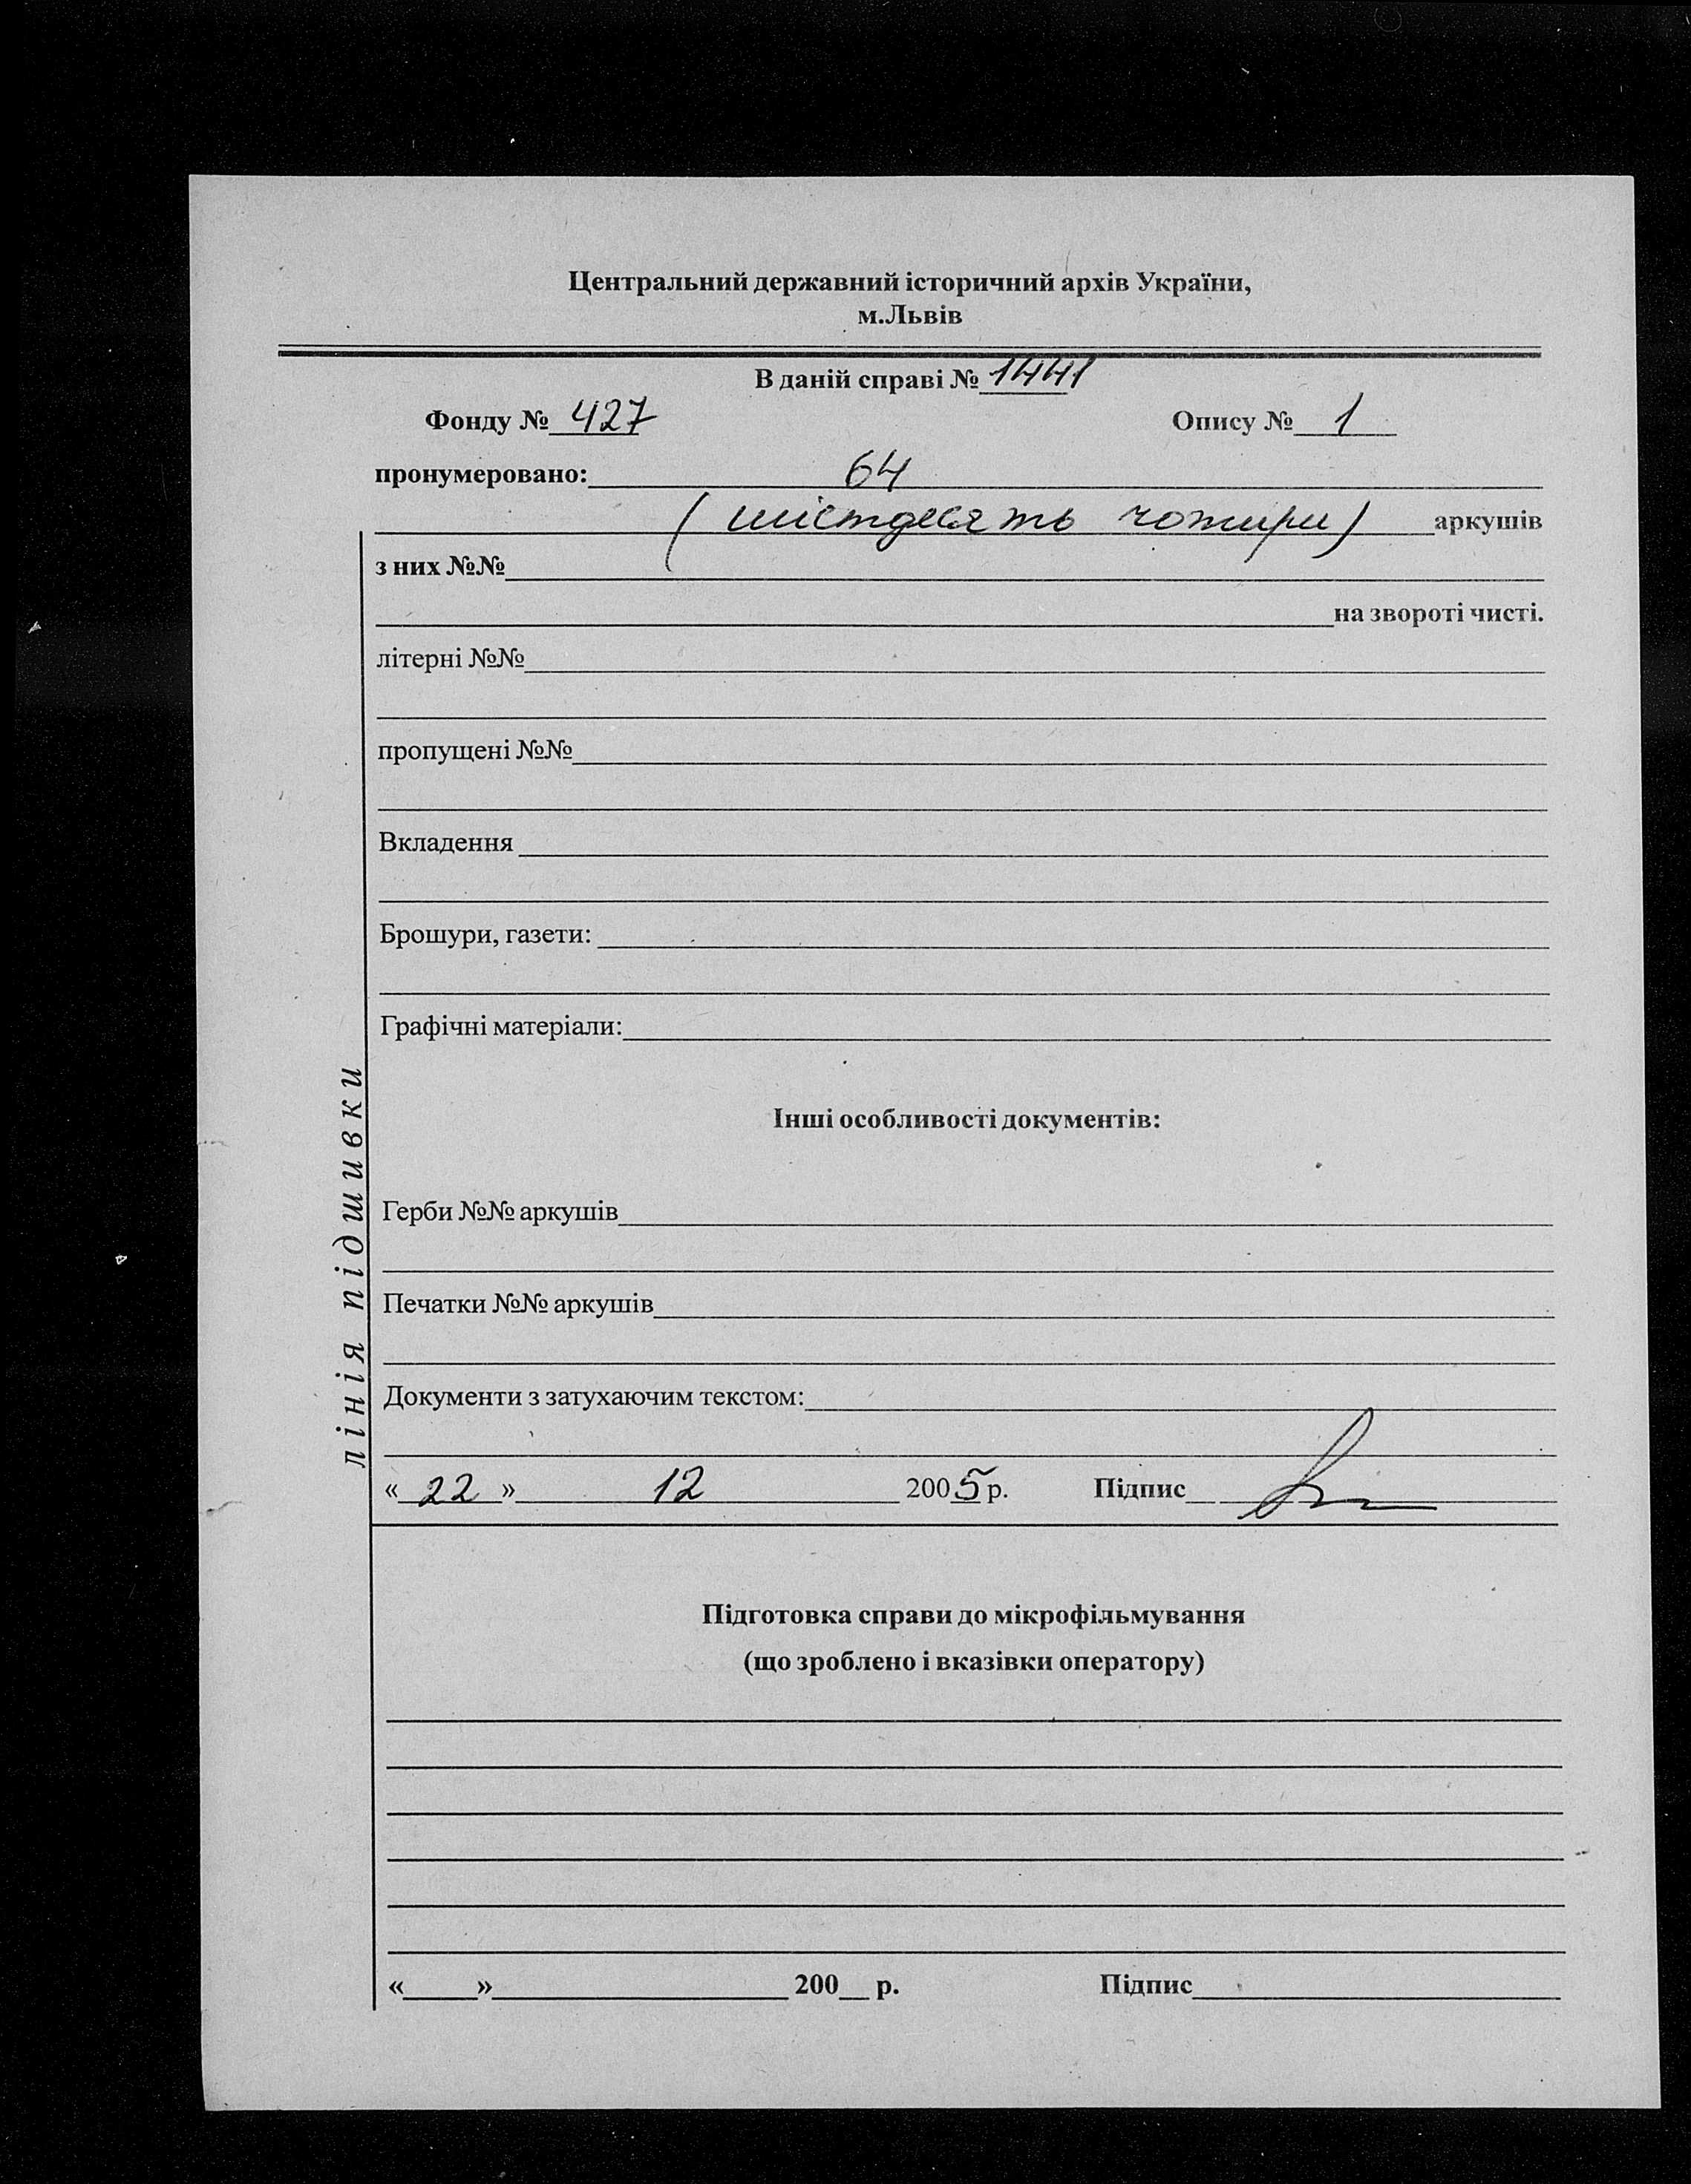 Центральний державний історичний архів України,
м.Львів
В даній справі № 1441
Фонду № 427 Опису № 1
пронумеровано: 64
( шістдесять чотири) аркушів
з них №№
на звороті чисті.
літерні №№
пропущені №№
Вкладення
Брошури, газети:
Графічні матеріали:
Інші особливості документів:
Герби №№ аркушів
Печатки №№ аркушів
Документи з затухаючим текстом:
« 22 » 12 2005 р. Підпис
лінія підшивки
Підготовка справи до мікрофільмування
(що зроблено і вказівки оператору)
« » 200 р. Підпис